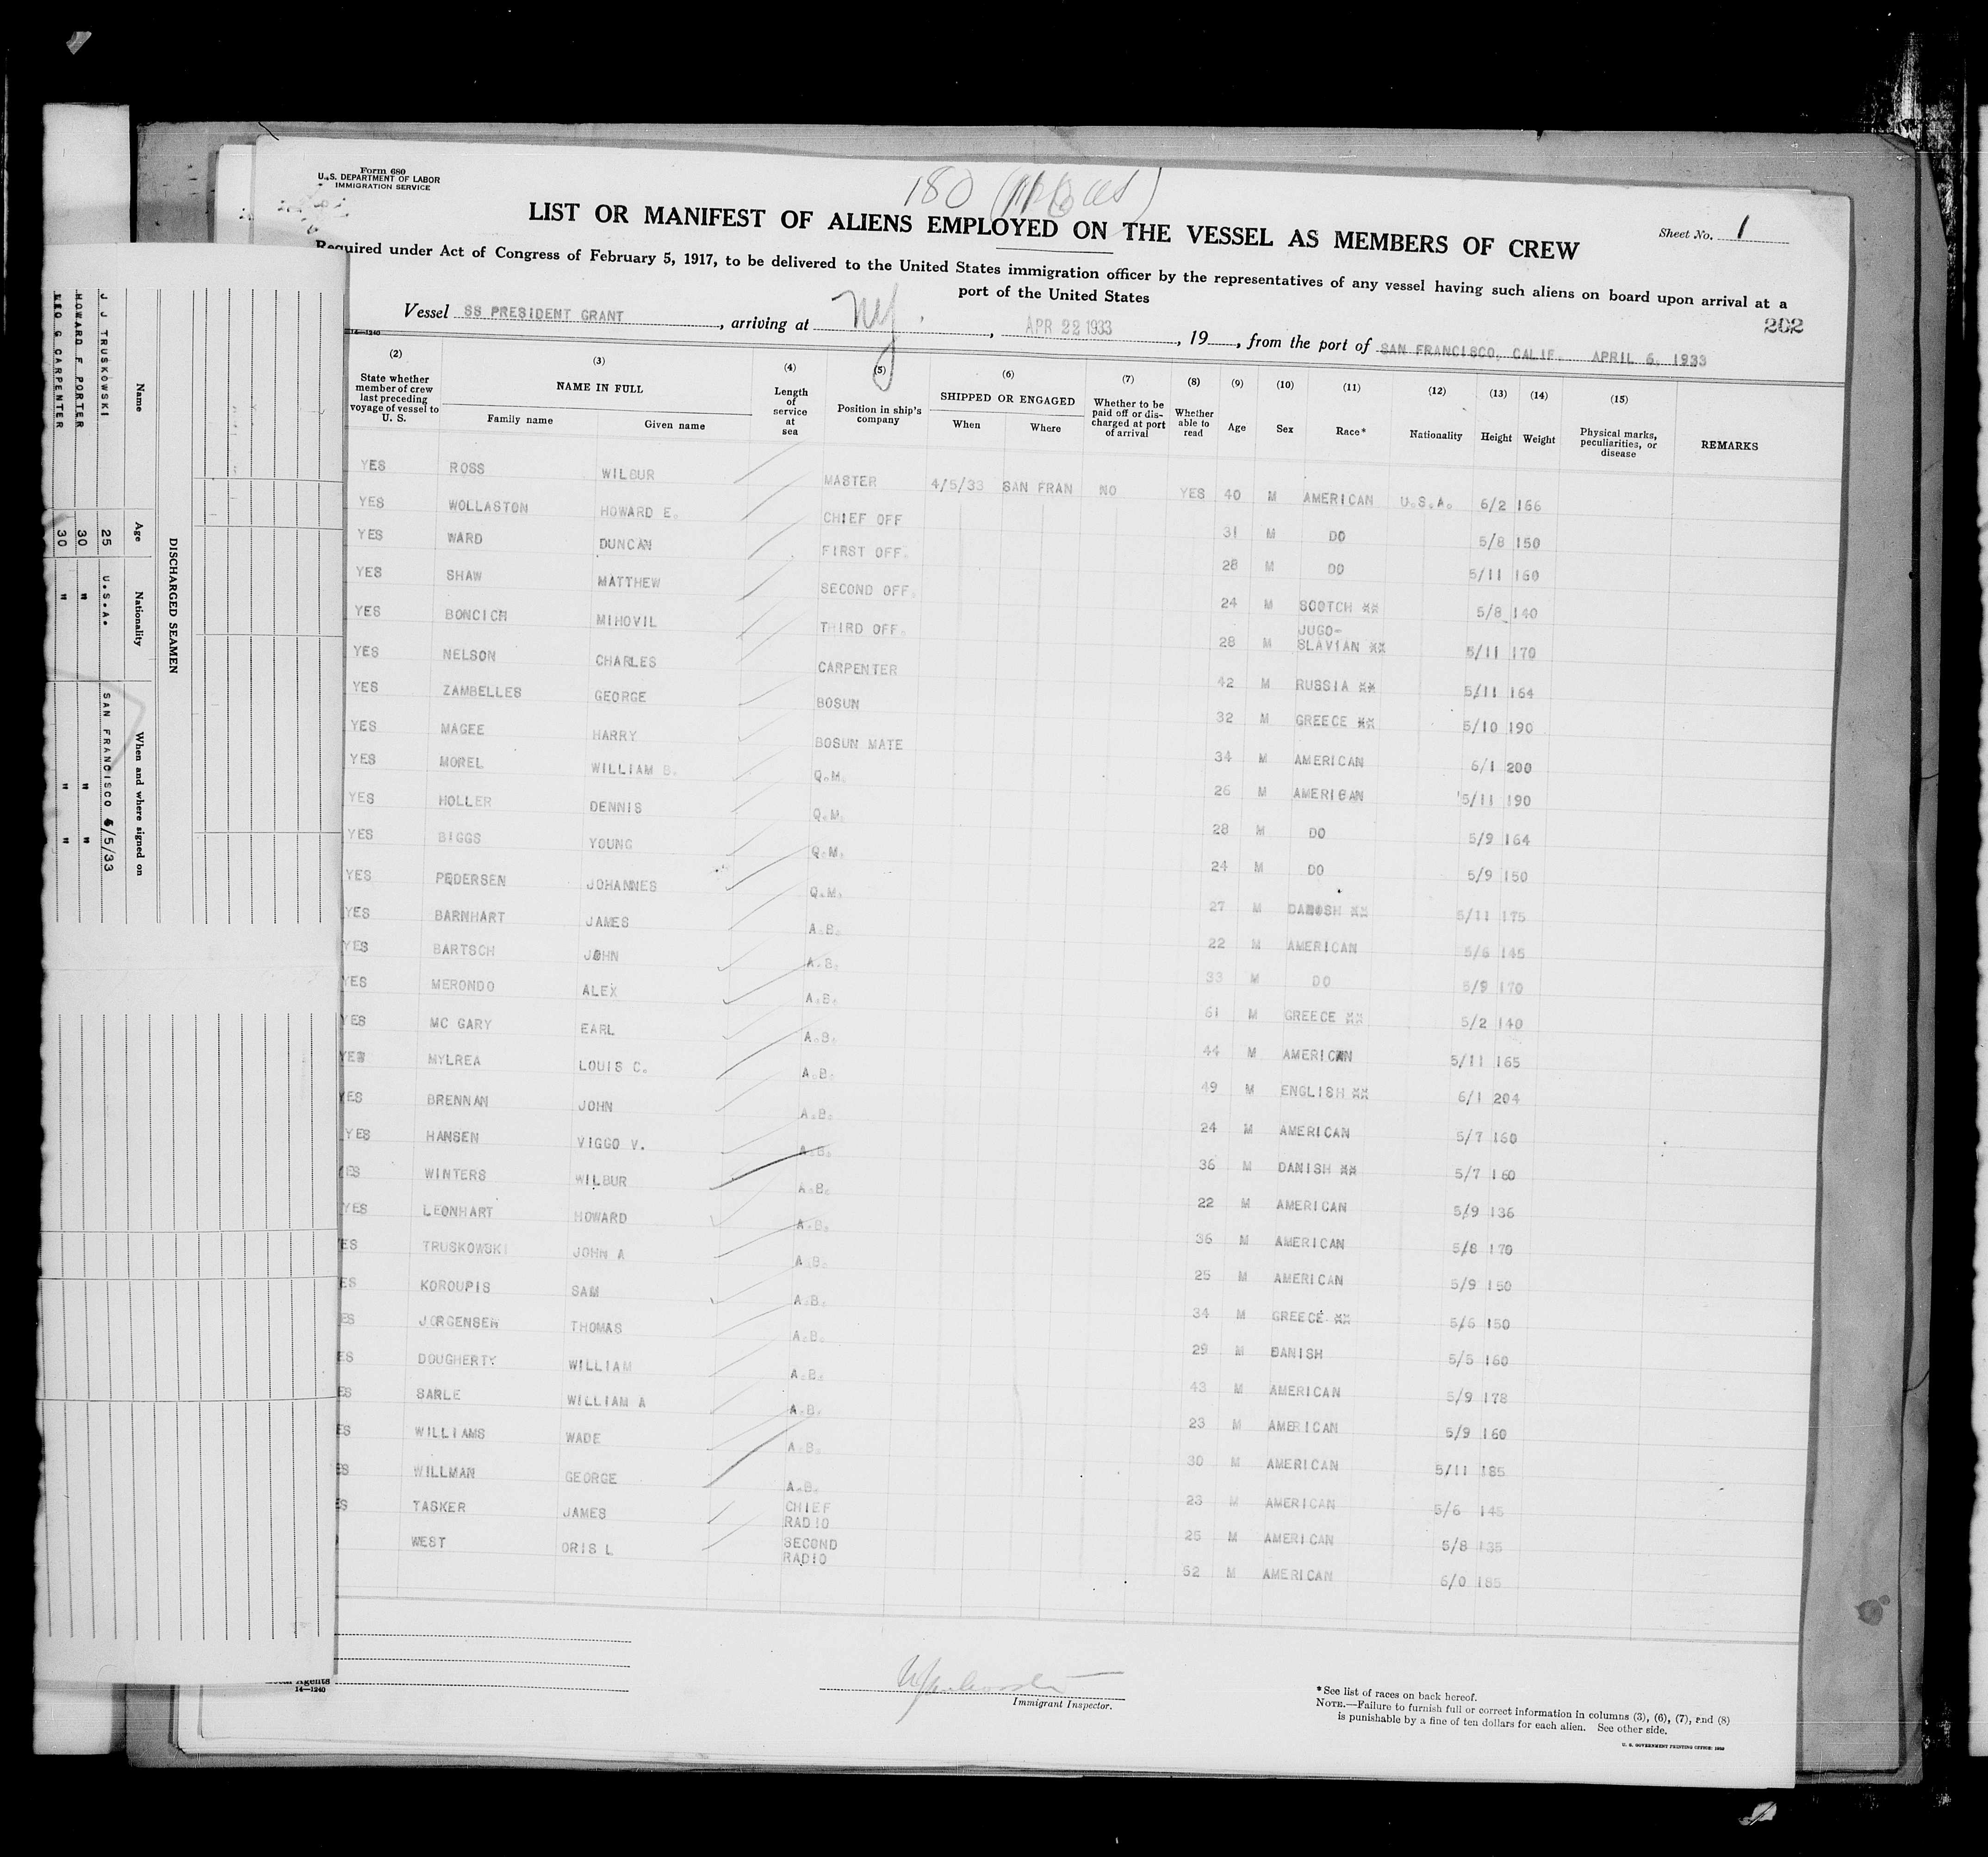 Form 680
U.S. DEPARTMENT OF LABOR
IMMIGRATION SERVICE
180
LIST OR MANIFEST OF ALIENS EMPLOYED ON THE VESSEL AS MEMBERS OF CREW
Sheet No. 1
Required under Act of Congress of February 5, 1917, to be delivered to the United States immigration officer by the representatives of any vessel having such aliens on board upon arrival at a
port of the United States
Vessel SS PRESIDENT GRANT, arriving at NY., APR 22 1933, 19, from the port of SAN FRANCISCO, CALIF. APRIL 6, 1933
202
14—1240
(2) (3) (4) (5) (6) (7) (8) (9) (10) (11) (12) (13) (14) (15)
State whether member of crew last preceding voyage of vessel to U. S. NAME IN FULL Family name Given name Length of service at sea Position in ship's company SHIPPED OR ENGAGED When Where Whether to be paid off or discharged at port of arrival Whether able to read Age Sex Race* Nationality Height Weight Physical marks, peculiarities, or disease REMARKS
YES ROSS WILBUR MASTER 4/5/33 SAN FRAN NO YES 40 M AMERICAN U.S.A. 6/2 166
YES WOLLASTON HOWARD E. CHIEF OFF 31 M DO 5/8 150
YES WARD DUNCAN FIRST OFF. 28 M DO 5/11 160
YES SHAW MATTHEW SECOND OFF. 24 M SCOTCH XX 5/8 140
YES BONCICH MIHOVIL THIRD OFF. 28 M JUGO-SLAVIAN XX 5/11 170
YES NELSON CHARLES CARPENTER 42 M RUSSIA XX 5/11 164
YES ZAMBELLES GEORGE BOSUN 32 M GREECE XX 5/10 190
YES MAGEE HARRY BOSUN MATE 34 M AMERICAN 6/1 200
YES MOREL WILLIAM B. Q.M. 26 M AMERICAN 5/11 190
YES HOLLER DENNIS Q.M. 28 M DO 5/9 164
YES BIGGS YOUNG Q.M. 24 M DO 5/9 150
YES PEDERSEN JOHANNES Q.M. 27 M DANISH XX 5/11 175
YES BARNHART JAMES A.B. 22 M AMERICAN 5/6 145
YES BARTSCH JOHN A.B. 33 M DO 5/9 170
YES MERONDO ALEX A.B. 61 M GREECE XX 5/2 140
YES MC GARY EARL A.B. 44 M AMERICAN 5/11 165
YES MYLREA LOUIS C. A.B. 49 M ENGLISH XX 6/1 204
YES BRENNAN JOHN A.B. 24 M AMERICAN 5/7 160
YES HANSEN VIGGO V. A.B. 36 M DANISH XX 5/7 160
ES WINTERS WILBUR A.B. 22 M AMERICAN 5/9 136
YES LEONHART HOWARD A.B. 36 M AMERICAN 5/8 170
ES TRUSKOWSKI JOHN A A.B. 25 M AMERICAN 5/9 150
ES KOROUPIS SAM A.B. 34 M GREECE XX 5/6 150
ES JORGENSEN THOMAS A.B. 29 M DANISH 5/5 160
ES DOUGHERTY WILLIAM A.B. 43 M AMERICAN 5/9 178
ES SARLE WILLIAM A A.B. 23 M AMERICAN 5/9 160
ES WILLIAMS WADE A.B. 30 M AMERICAN 5/11 185
ES WILLMAN GEORGE A.B. 23 M AMERICAN 5/6 145
S TASKER JAMES CHIEF RADIO 25 M AMERICAN 5/8 135
WEST ORIS L SECOND RADIO 52 M AMERICAN 6/0 185
Agents
14—1240
Immigrant Inspector.
*See list of races on back hereof.
NOTE.—Failure to furnish full or correct information in columns (3), (6), (7), and (8)
is punishable by a fine of ten dollars for each alien. See other side.
U. S. GOVERNMENT PRINTING OFFICE:
DISCHARGED SEAMEN
Name Age Nationality When and where signed on
J J TRUSKOWSKI 25 U.S.A. SAN FRANCISCO 4/5/33
HOWARD F PORTER 30 " " "
LEO G CARPENTER 30 " " "